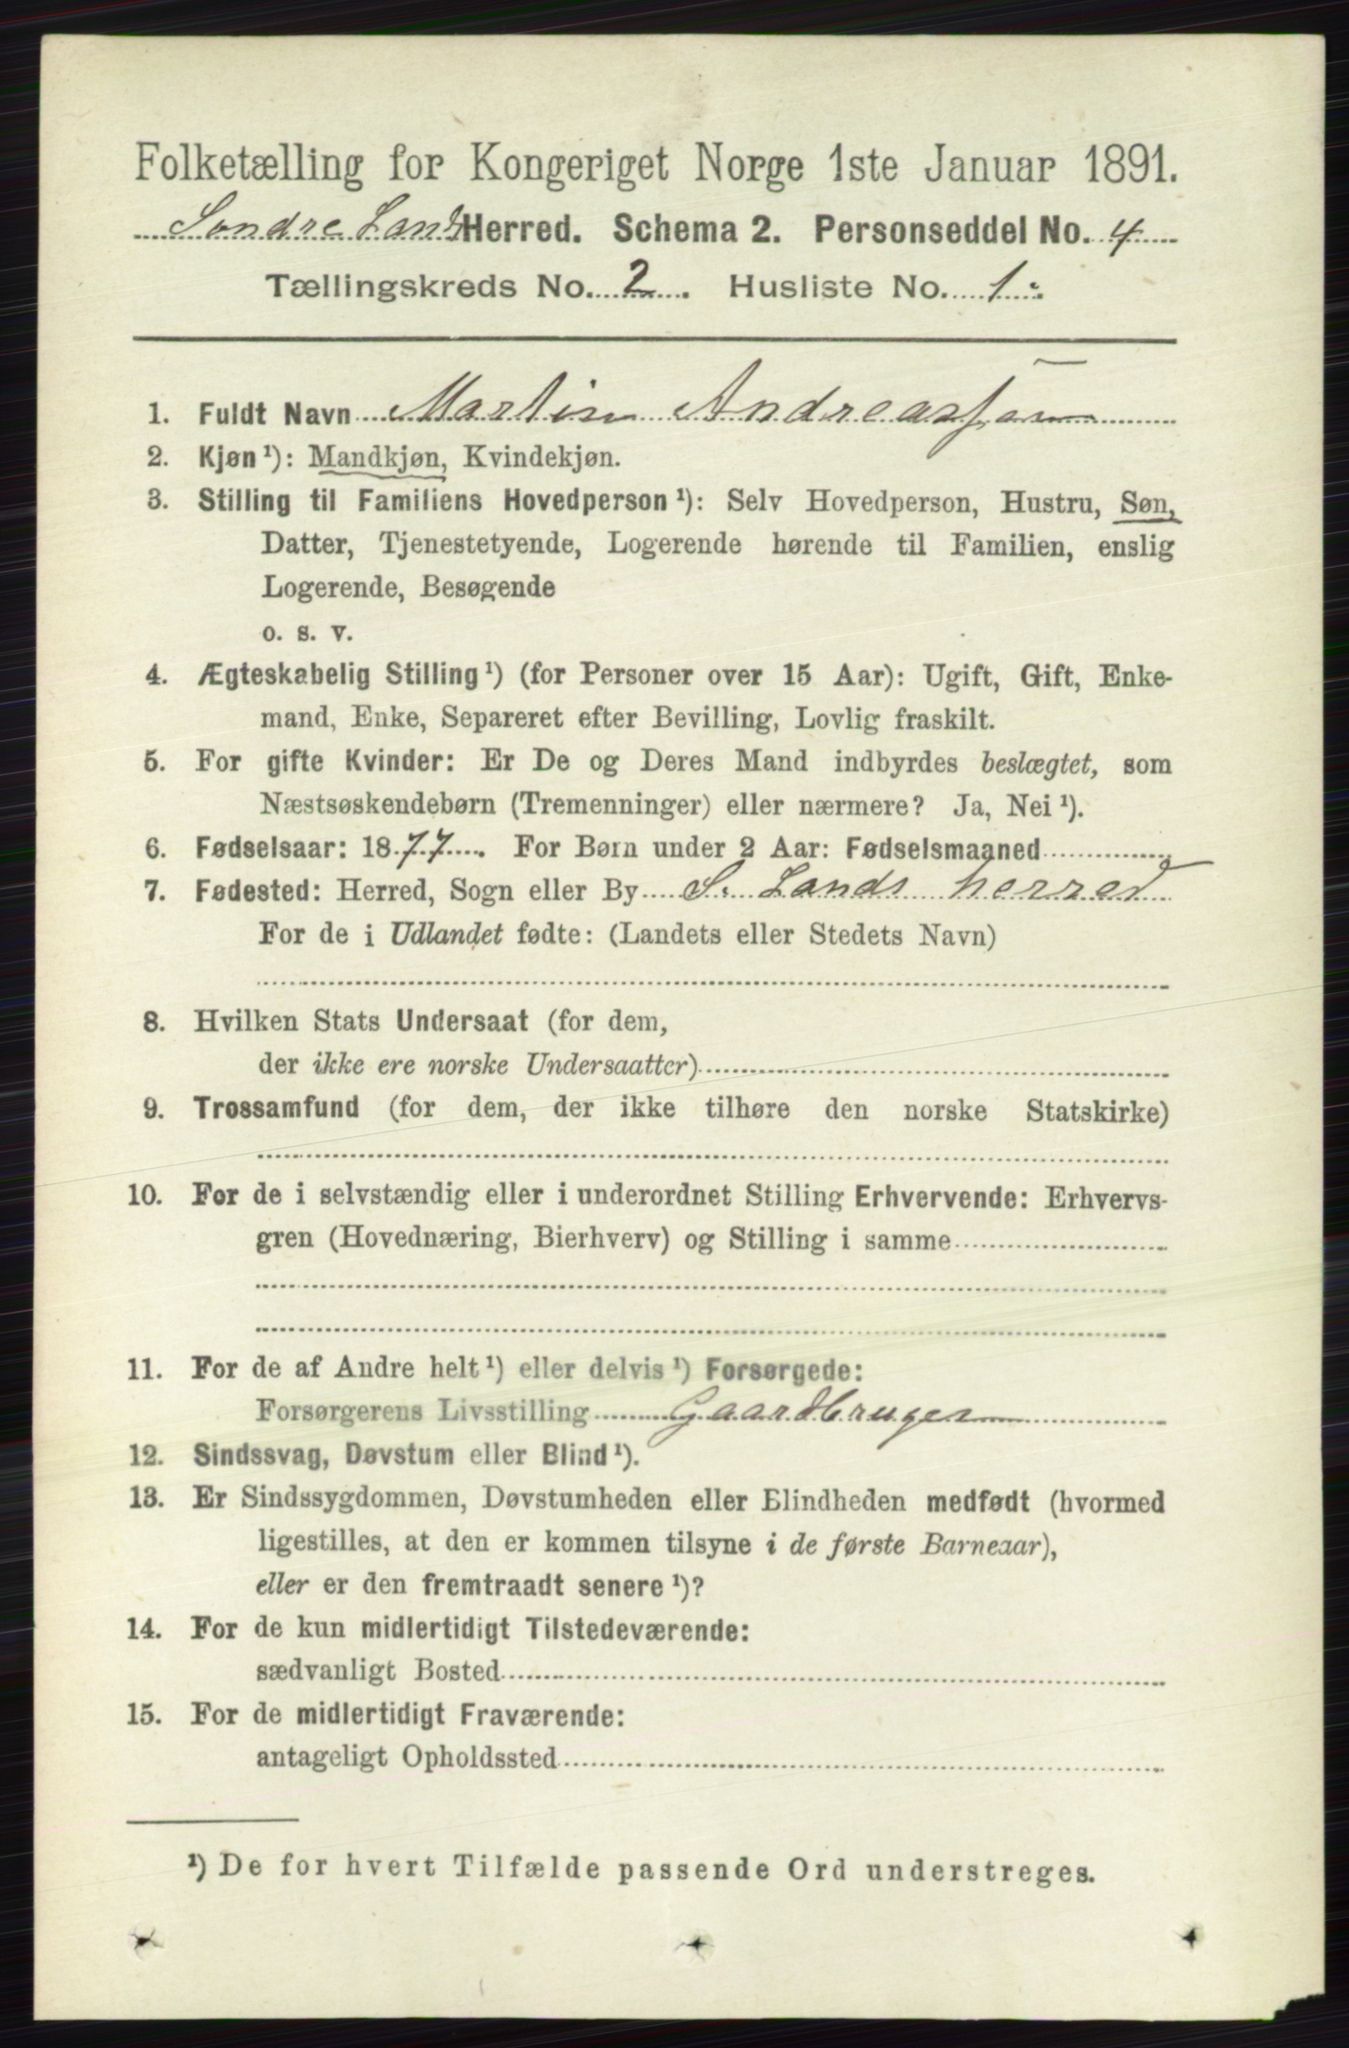 Folketælling for Kongeriget Norge 1ste Januar 1891.
Søndre Lands Herred. Schema 2. Personseddel No. 4
Tællingskreds No. 2. Husliste No. 1.
1. Fuldt Navn Martin Andreassen
2. Kjøn ¹): Mandkjøn, Kvindekjøn.
3. Stilling til Familiens Hovedperson ¹): Selv Hovedperson, Hustru, Søn,
Datter, Tjenestetyende, Logerende hørende til Familien, enslig
Logerende, Besøgende
o. s. v.
4. Ægteskabelig Stilling ¹) (for Personer over 15 Aar): Ugift, Gift, Enke-
mand, Enke, Separeret efter Bevilling, Lovlig fraskilt.
5. For gifte Kvinder: Er De og Deres Mand indbyrdes beslægtet, som
Næstsøskendebørn (Tremenninger) eller nærmere? Ja, Nei ¹).
6. Fødselsaar: 1877. For Børn under 2 Aar: Fødselsmaaned
7. Fødested: Herred, Sogn eller By S. Lands herred
For de i Udlandet fødte: (Landets eller Stedets Navn)
8. Hvilken Stats Undersaat (for dem,
der ikke ere norske Undersaatter)
9. Trossamfund (for dem, der ikke tilhøre den norske Statskirke)
10. For de i selvstændig eller i underordnet Stilling Erhvervende: Erhvervs-
gren (Hovednæring, Bierhverv) og Stilling i samme
11. For de af Andre helt ¹) eller delvis ¹) Forsørgede:
Forsørgerens Livsstilling Gaardbruger
12. Sindssvag, Døvstum eller Blind ¹).
13. Er Sindssygdommen, Døvstumheden eller Blindheden medfødt (hvormed
ligestilles, at den er kommen tilsyne i de første Barneaar),
eller er den fremtraadt senere ¹)?
14. For de kun midlertidigt Tilstedeværende:
sædvanligt Bosted
15. For de midlertidigt Fraværende:
antageligt Opholdssted
¹) De for hvert Tilfælde passende Ord understreges.